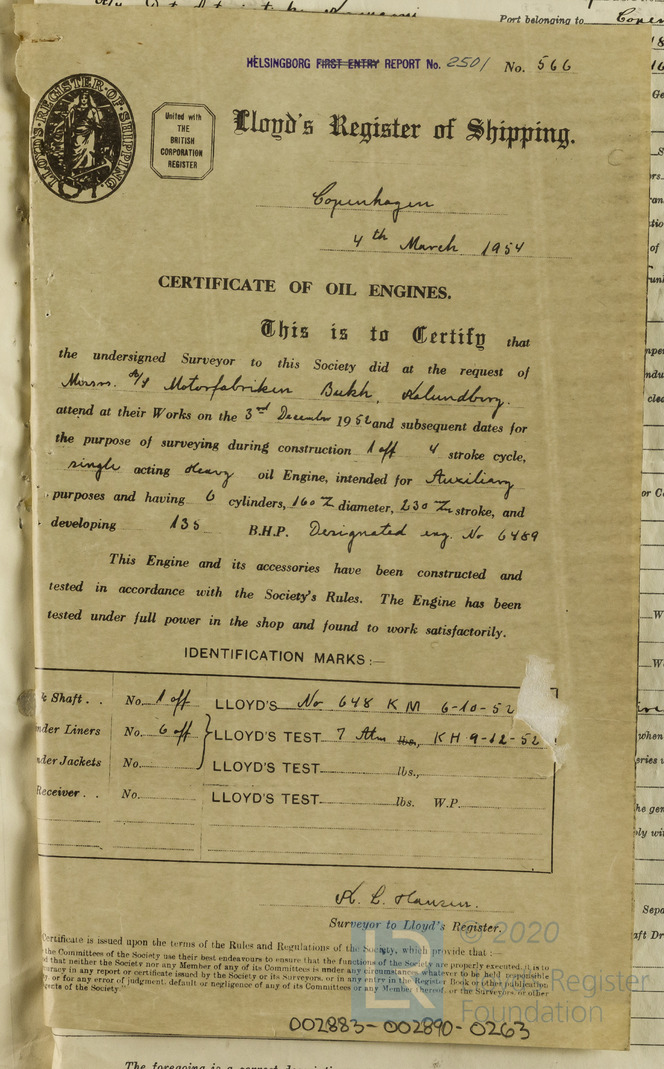 Port belonging to Copen
HELSINGBORG FIRST ENTRY REPORT No. 2501 No. 566
LLOYD'S REGISTER OF SHIPPING
United with
THE
BRITISH
CORPORATION
REGISTER
Lloyd's Register of Shipping.
Copenhagen
4th March 1954
CERTIFICATE OF OIL ENGINES.
This is to Certify that
the undersigned Surveyor to this Society did at the request of
Messrs. A/S Motorfabriken Bukh, Kalundborg.
attend at their Works on the 3rd December 1952 and subsequent dates for
the purpose of surveying during construction 1 off 4 stroke cycle,
single acting Heavy oil Engine, intended for Auxiliary
purposes and having 6 cylinders, 160 diameter, 230 stroke, and
developing 135 B.H.P. Designated eng. No 6489
This Engine and its accessories have been constructed and
tested in accordance with the Society's Rules. The Engine has been
tested under full power in the shop and found to work satisfactorily.
IDENTIFICATION MARKS:—
k Shaft . . No. 1 off LLOYD'S No 648 K M 6-10-52
nder Liners No. 6 off LLOYD'S TEST 7 Atm lbs., K H 9-12-52
nder Jackets No. LLOYD'S TEST lbs.,
Receiver . . No. LLOYD'S TEST lbs. W.P.
K. L. Hansen.
Surveyor to Lloyd's Register.
Certificate is issued upon the terms of the Rules and Regulations of the Society, which provide that :—
the Committees of the Society use their best endeavours to ensure that the functions of the Society are properly executed, it is to
d that neither the Society nor any Member of any of its Committees is under any circumstances whatever to be held responsible
curacy in any report or certificate issued by the Society or its Surveyors, or in any entry in the Register Book or other publication
y, or for any error of judgment, default or negligence of any of its Committees or any Member thereof, or the Surveyors, or other
gents of the Society."
© 2020
Lloyd's Register
Foundation
002883-002890-0263
The foregoing is a correct